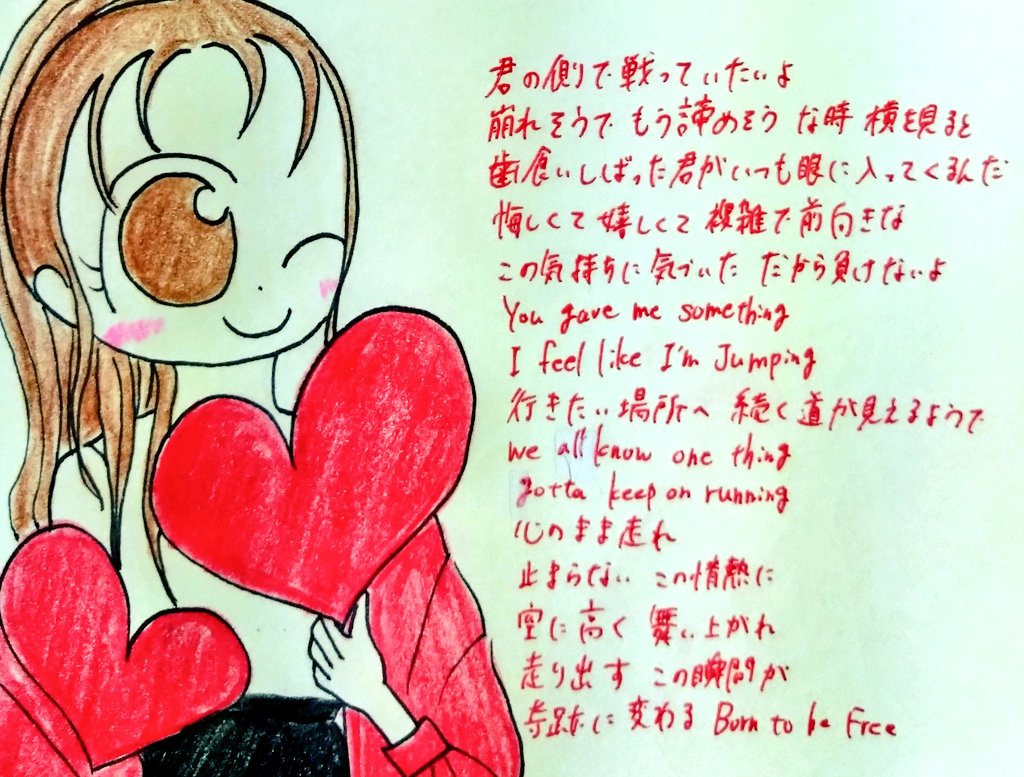 君の側で戦っていたいよ
崩れそうで もう諦めそう な時 横を見ると
歯食いしばった君がいつも眼に入ってくるんだ
悔しくて嬉しくて 複雑で前向きな
この気持ちに気づいた だから負けないよ
You gave me something
I feel like I'm Jumping
行きたい場所へ 続く道が見えるようで
we all know one thing
gotta keep on running
心のまま走れ
止まらない この情熱に
空に高く 舞い上がれ
走り出す この瞬間が
奇跡に変わる Born to be Free